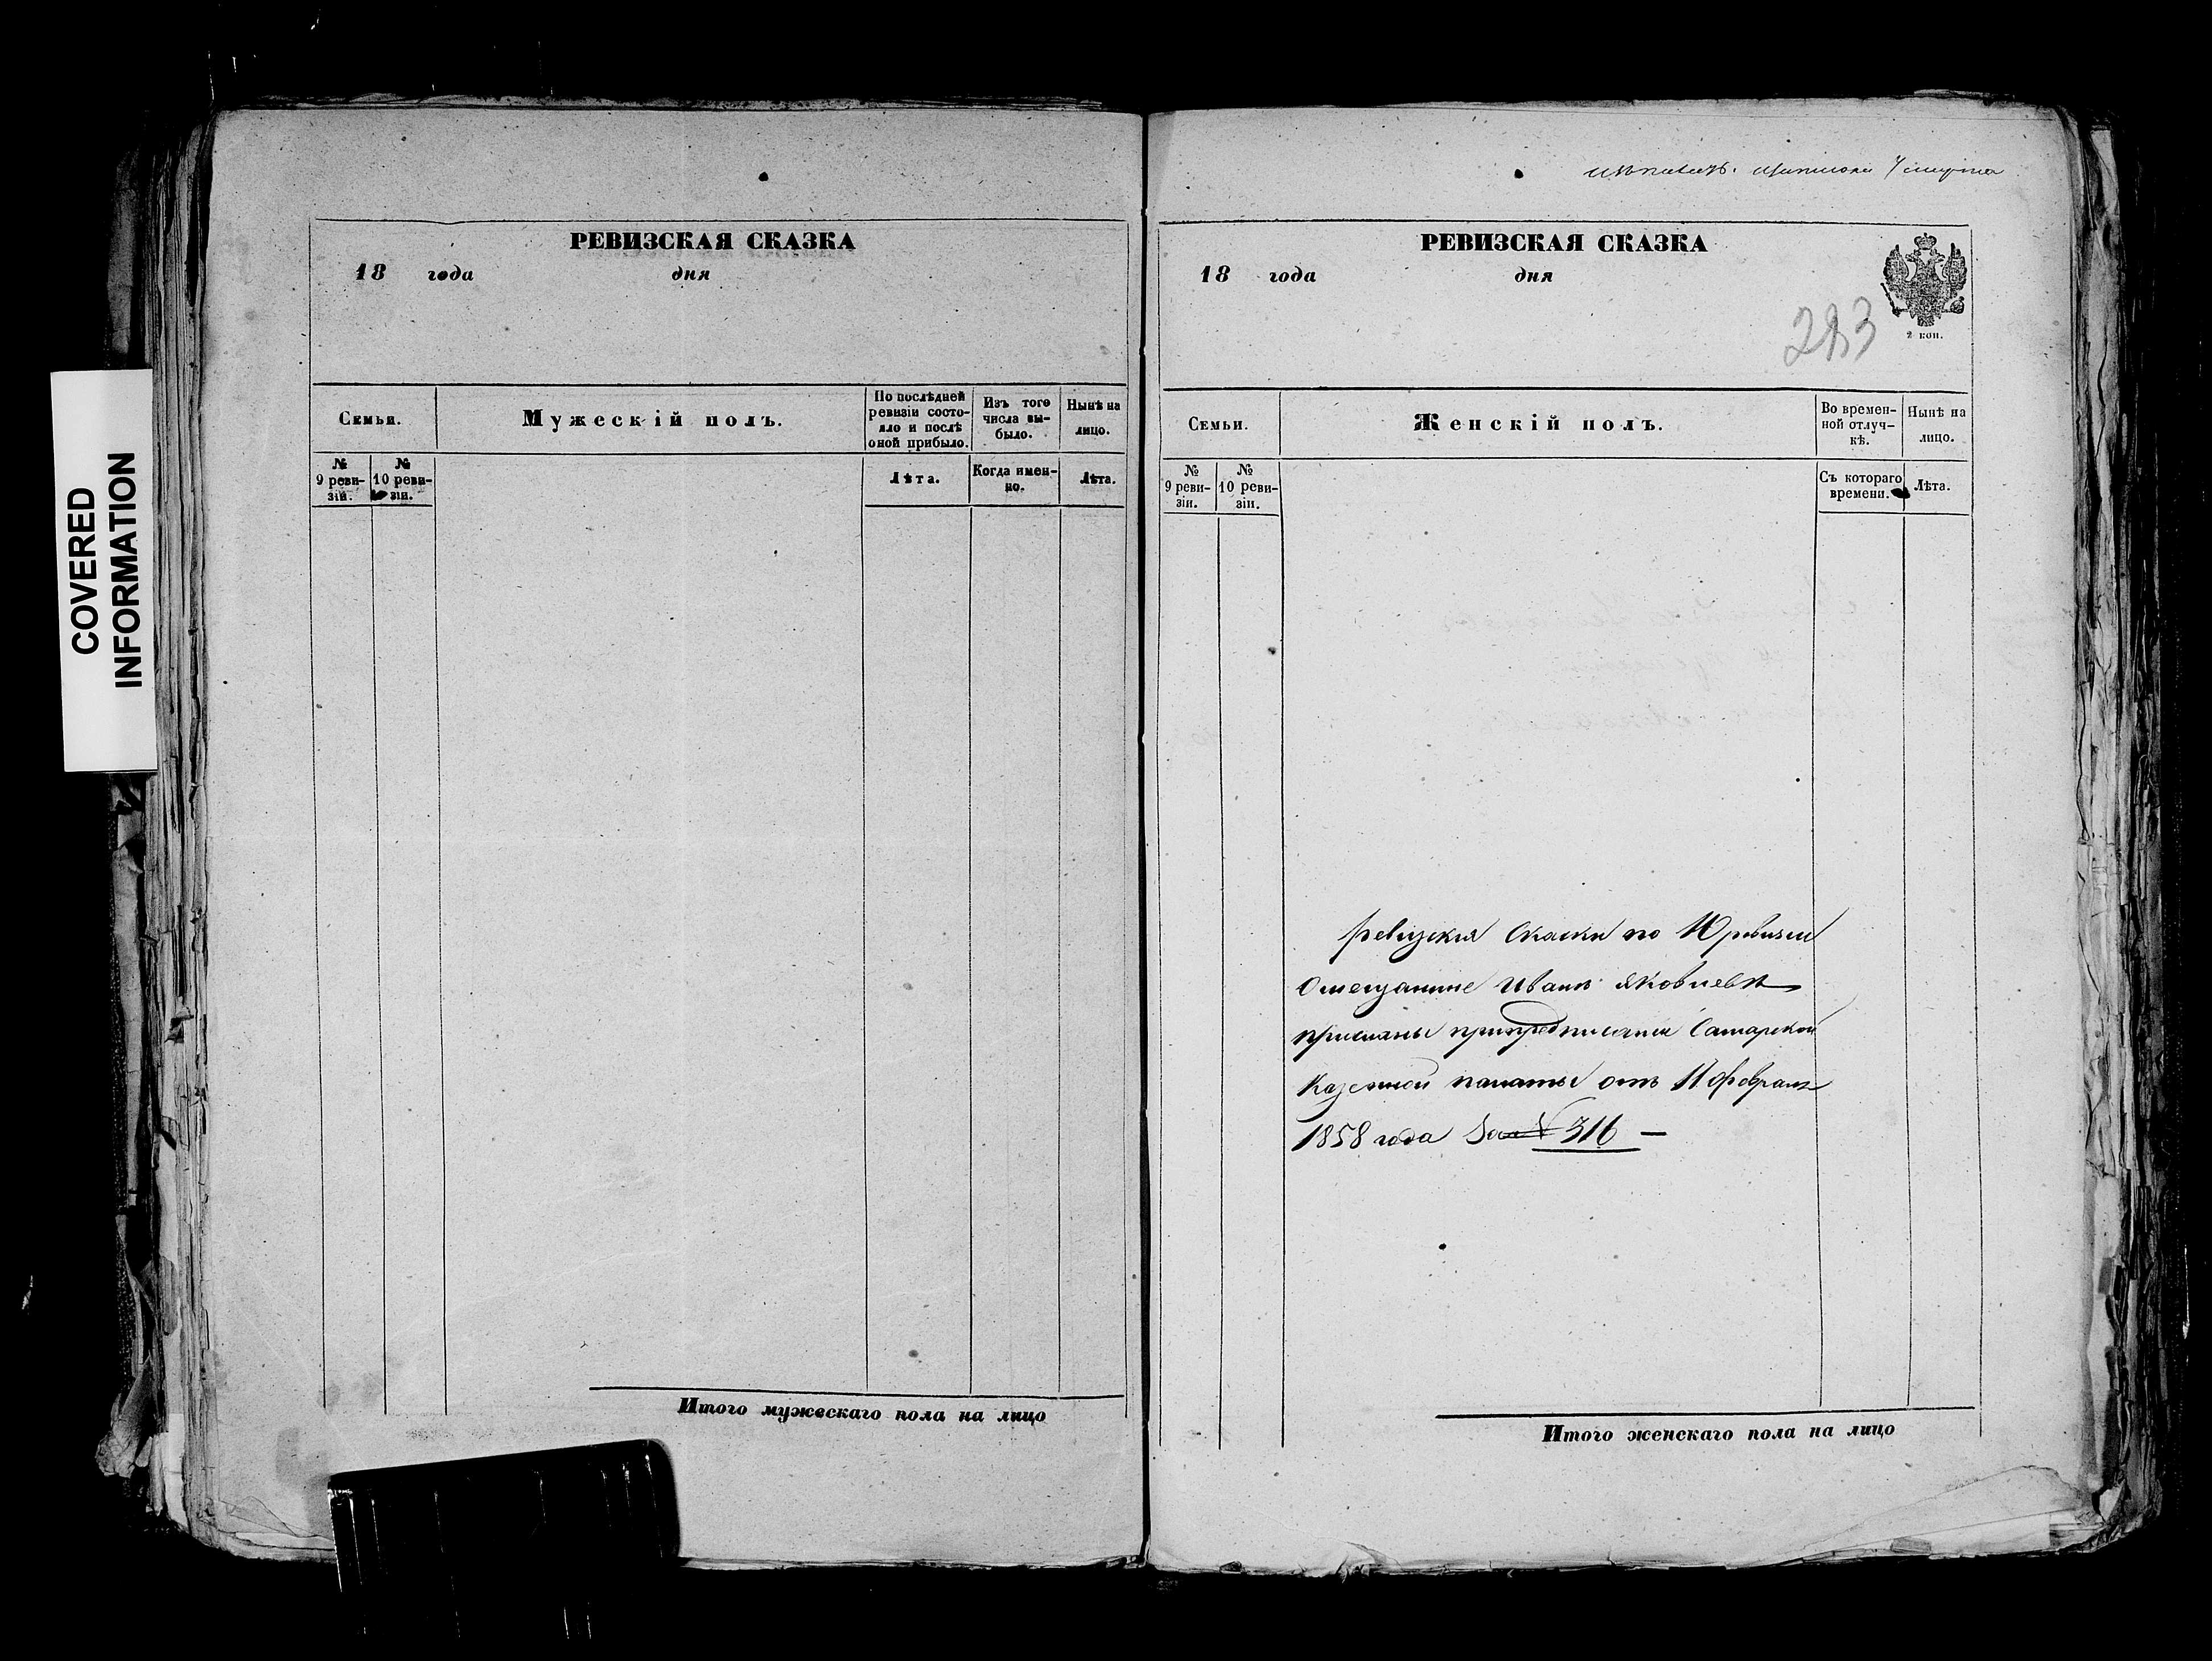 COVERED
INFORMATION
РЕВИЗСКАЯ СКАЗКА
18 года дня
Семьи.
Мужескій полъ.
По послѣдней
ревизіи состо-
яло и послѣ
оной прибыло.
Изъ того
числа вы-
было.
Нынѣ на
лицо.
№
9 реви-
зіи.
№
10 реви-
зіи.
Лѣта.
Когда имен-
но.
Лѣта.
Итого мужескаго пола на лицо
РЕВИЗСКАЯ СКАЗКА
18 года дня
2 коп.
283
Семьи.
Женскій полъ.
Во времен-
ной отлуч-
кѣ.
Нынѣ на
лицо.
№
9 реви-
зіи.
№
10 реви-
зіи.
Съ котораго
времени.
Лѣта.
ревизкия Скаски по 10 ревизии
Омещанине Иванѣ Яковлевѣ
присланы припредписании Самарской
Казенной палаты отъ 11 февраля
1858 года За № 316 —
Итого женскаго пола на лицо